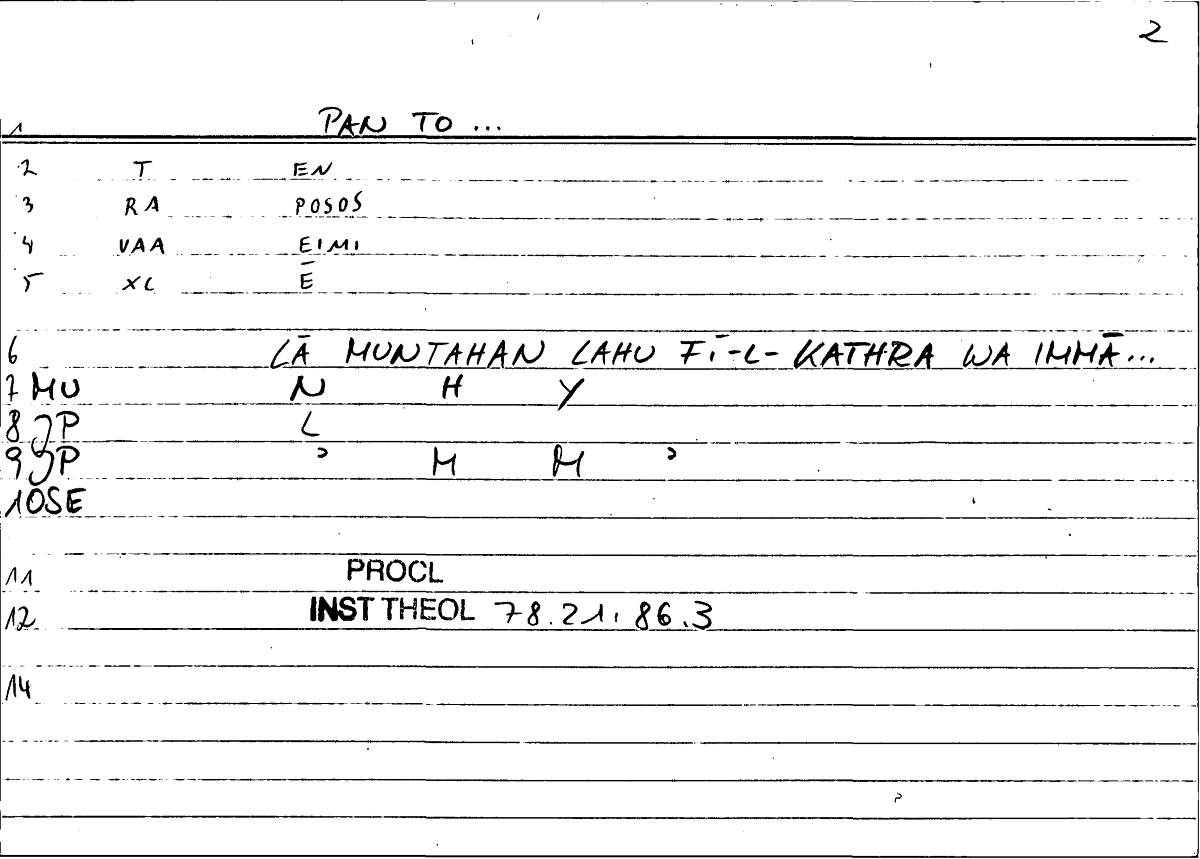 2
1 PAN TO ...
2 T EN
3 RA POSOS
4 VAA EIMI
5 XL Ē
6 LĀ MUNTAHAN LAHU FĪ-L-KATHRA WA IMMĀ...
7 MU N H Y
8 JP L
9 JP ʾ M M ʾ
10 SE
11 PROCL
12 INST THEOL 78.21, 86.3
14